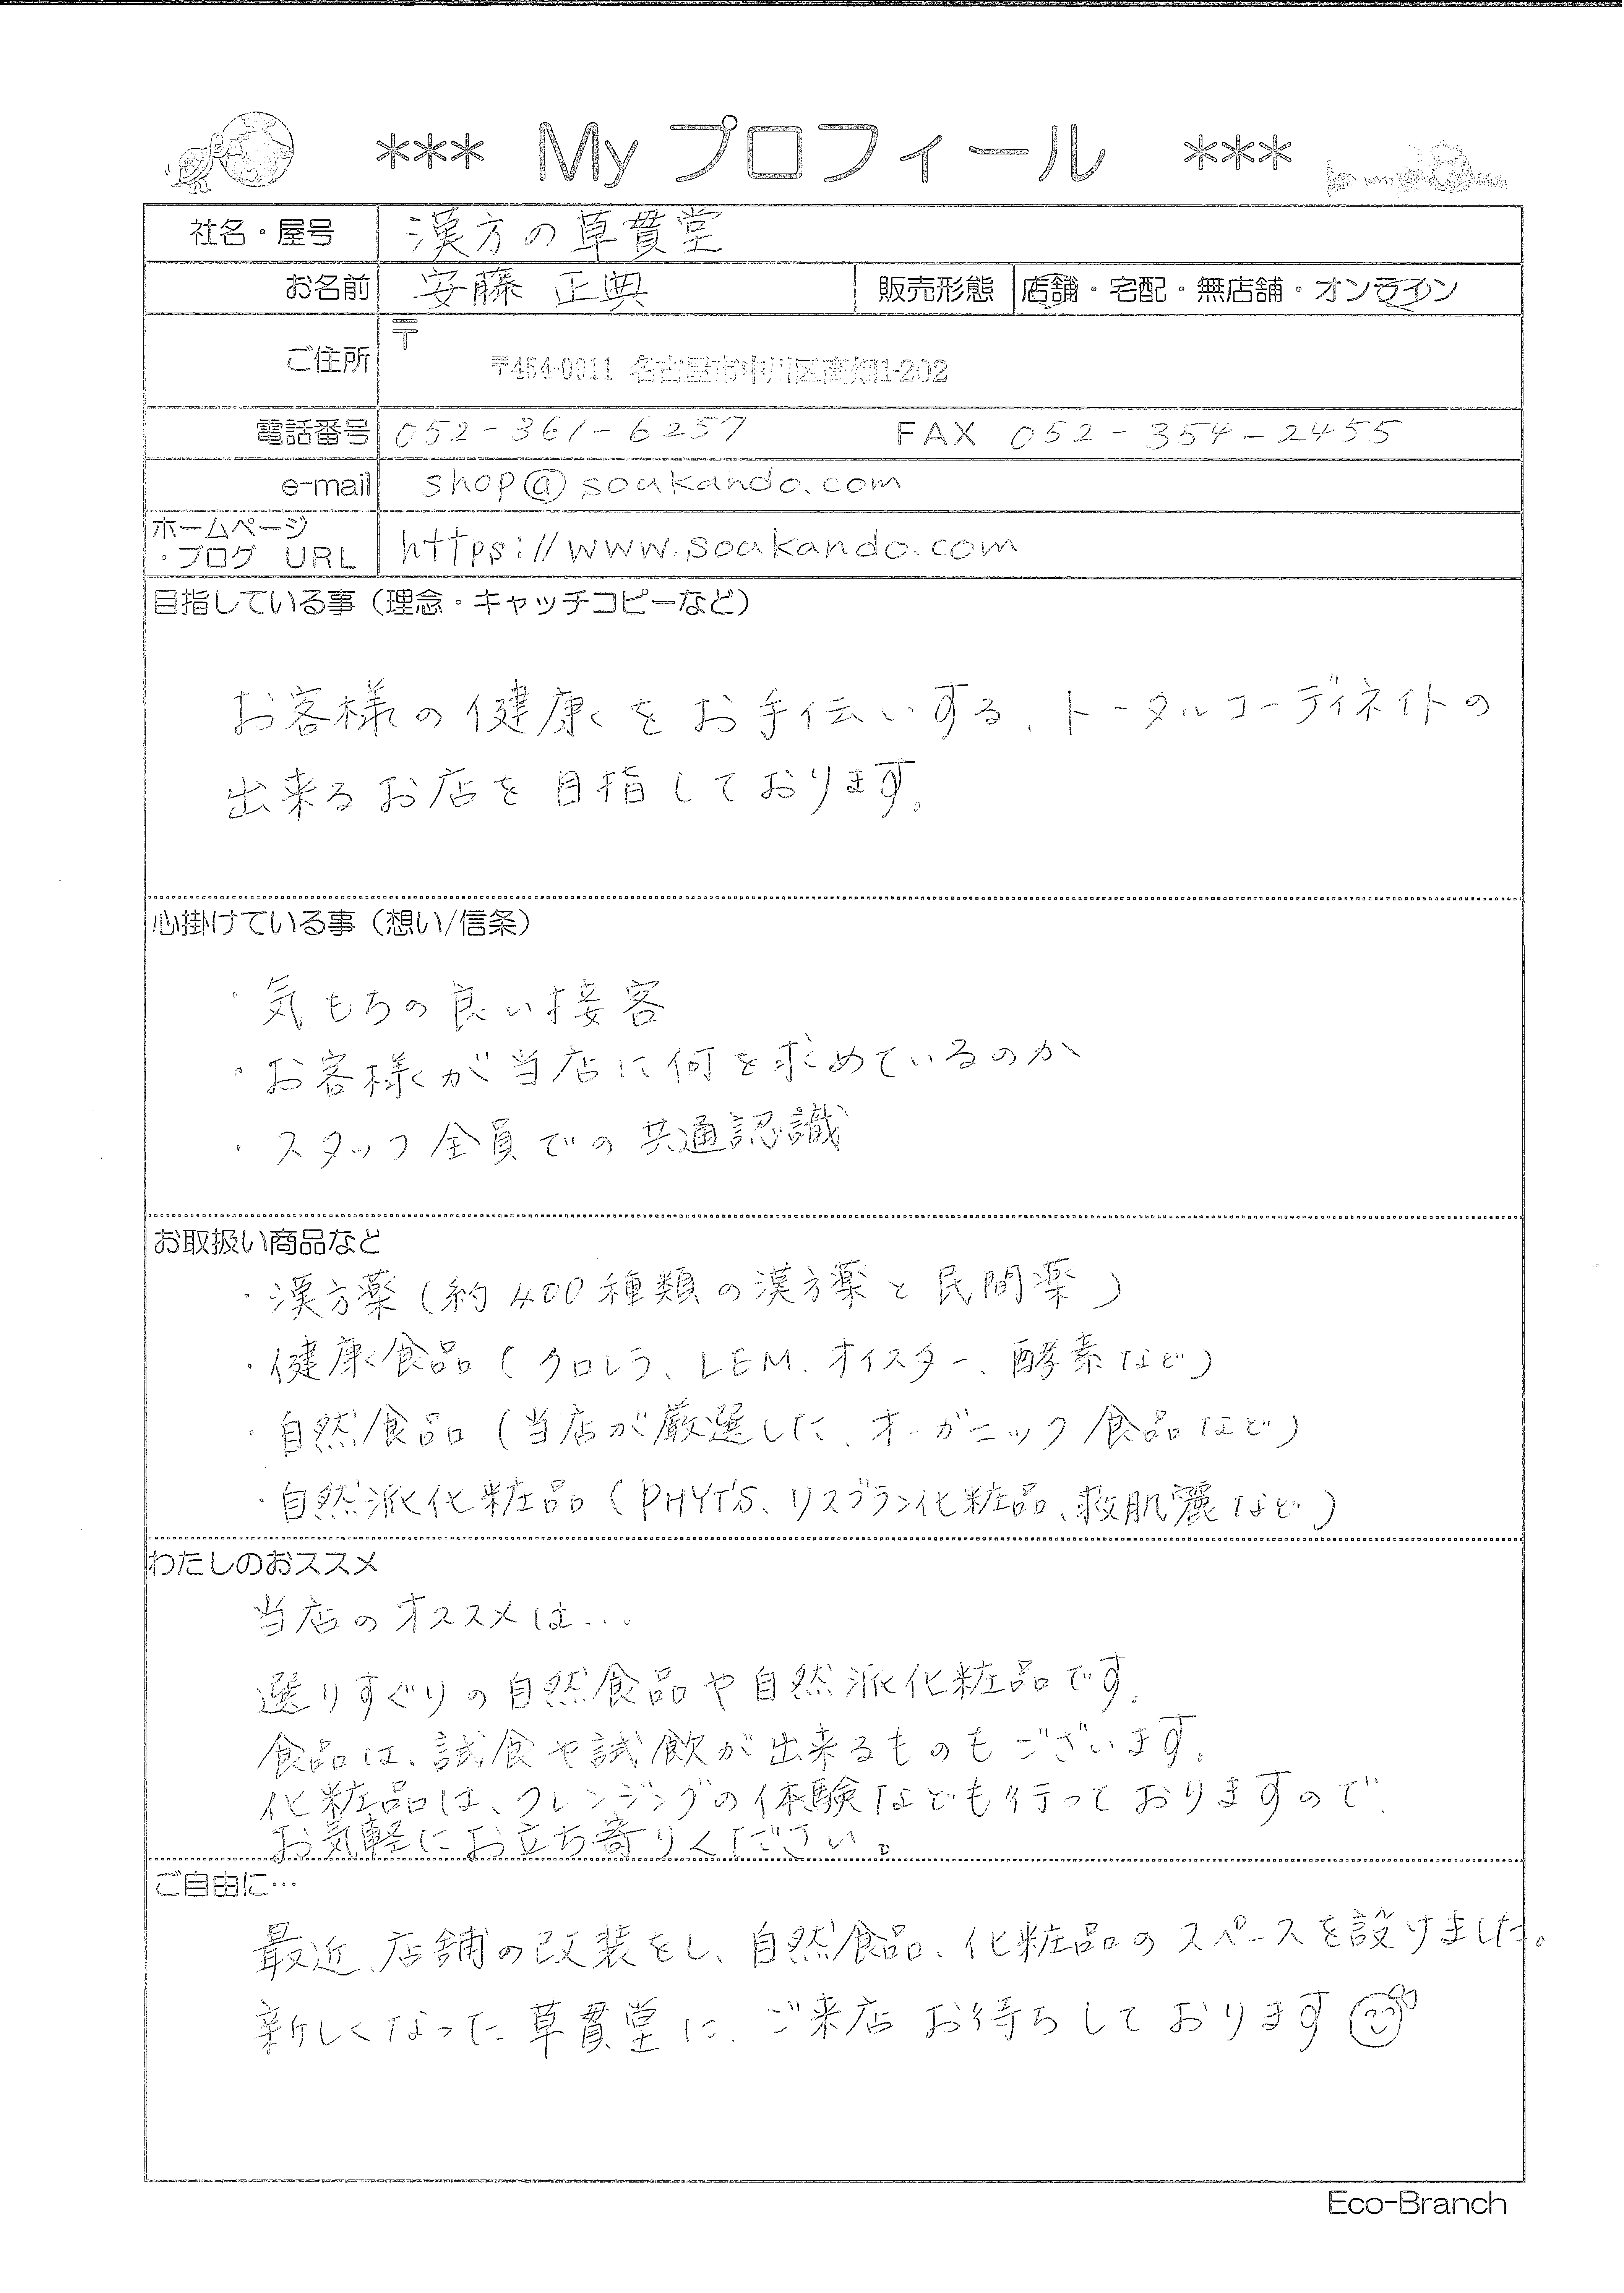 *** My プロフィール ***
社名・屋号 漢方の草貫堂
お名前 安藤 正典 販売形態 店舗・宅配・無店舗・オンライン
ご住所 〒
〒454-0911 名古屋市中川区高畑1-202
電話番号 052-361-6257 FAX 052-354-2455
e-mail shop@soukando.com
ホームページ
・ブログ URL https://www.soukando.com
目指している事（理念・キャッチコピーなど）
お客様の健康をお手伝いする、トータルコーディネイトの
出来るお店を目指しております。
心掛けている事（想い/信条）
・気もちの良い接客
・お客様が当店に何を求めているのか
・スタッフ全員での共通認識
お取扱い商品など
・漢方薬（約400種類の漢方薬と民間薬）
・健康食品（クロレラ、LEM、オイスター、酵素など）
・自然食品（当店が厳選した、オーガニック食品など）
・自然派化粧品（PHYT'S、リスブラン化粧品、救肌麗など）
わたしのおススメ
当店のオススメは...
選りすぐりの自然食品や自然派化粧品です。
食品は、試食や試飲が出来るものもございます。
化粧品は、クレンジングの体験なども行っておりますので、
お気軽にお立ち寄りください。
ご自由に…
最近、店舗の改装をし、自然食品、化粧品のスペースを設けました。
新しくなった草貫堂に、ご来店お待ちしております
Eco-Branch